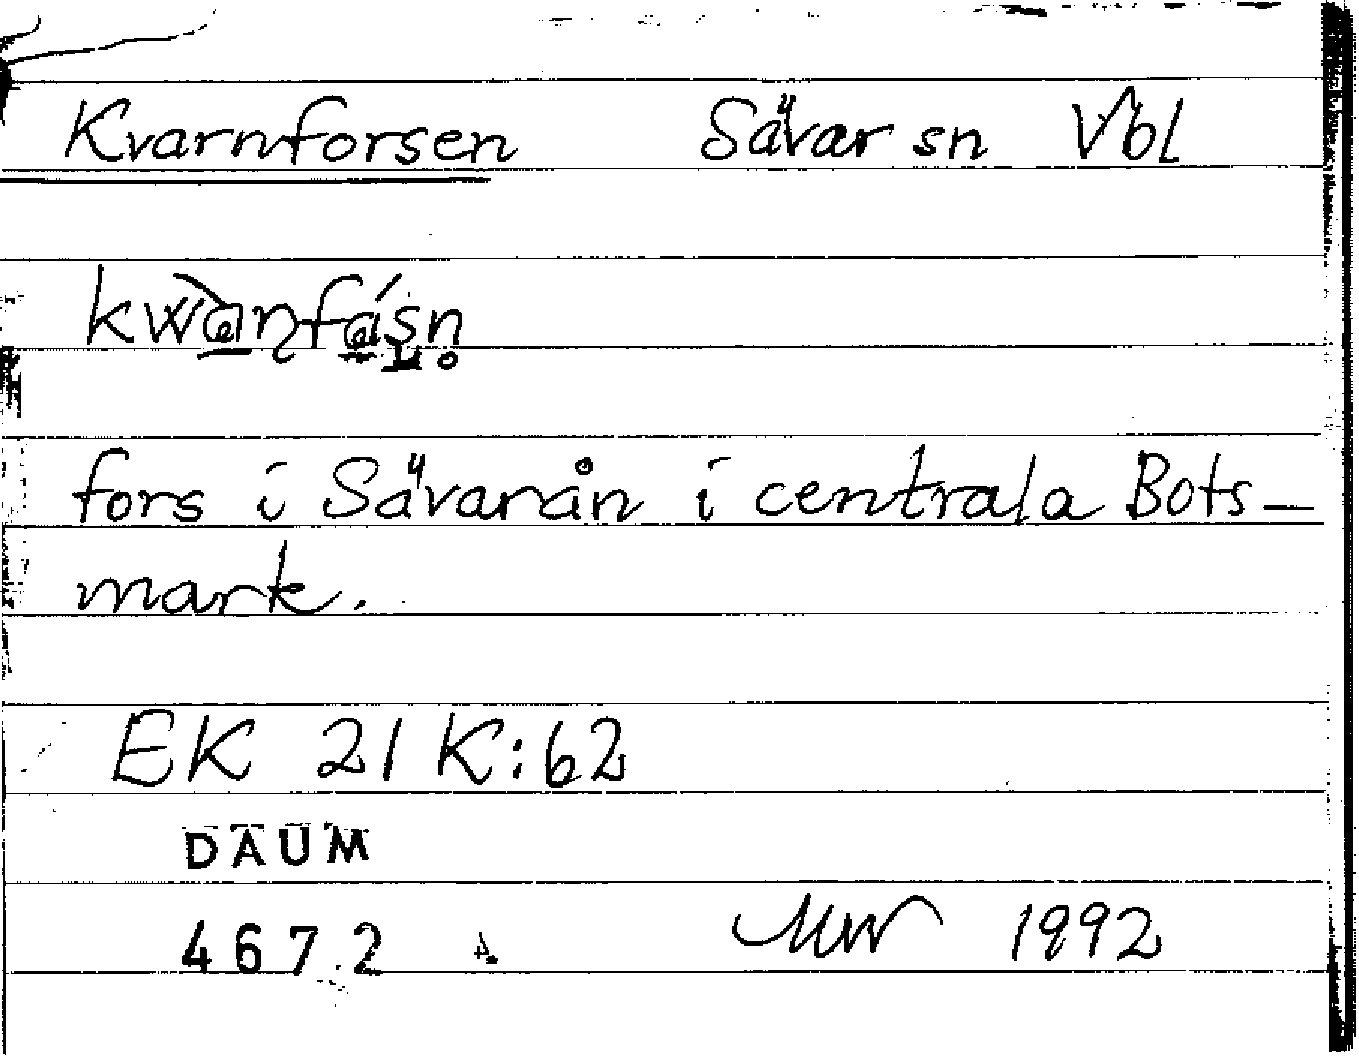 Kvarnforsen Sävar sn Vbl
fors i Sävarån i centrala Bots-
mark.
EK 21 K:62
DAUM
4672
1992